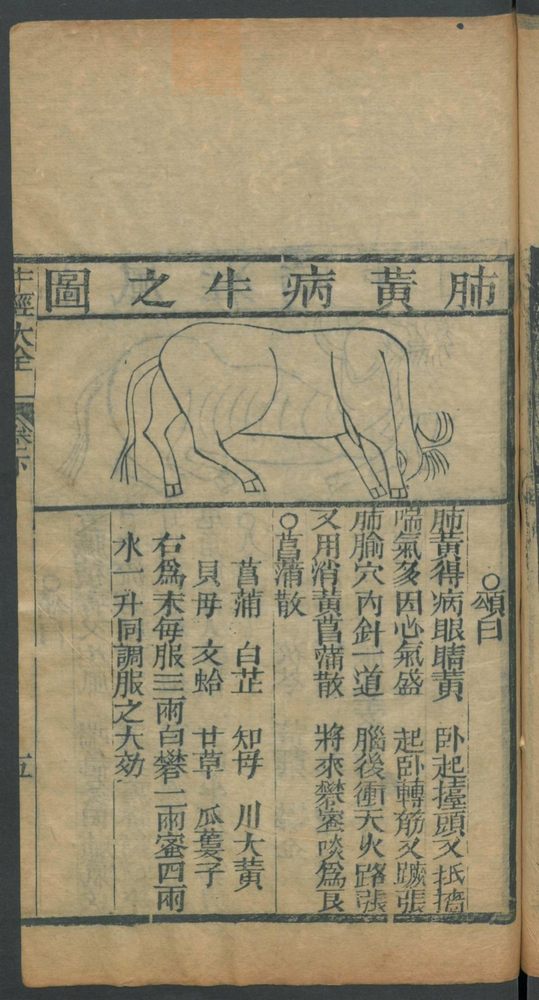 肺黃病牛之圖
○頌曰
肺黃得病眼睛黃　臥起擡頭又抵墻
喘氣多因心氣盛　起臥轉筋又蹶張
肺腧穴內針一道　腦後衝天火路張
又用消黃菖蒲散　將來礬蜜啖爲良
○菖蒲散
菖蒲　白芷　知母　川大黃
貝母　文蛤　甘草　瓜蔞子
右爲末每服三兩白礬二兩蜜四兩
水一升同調服之大効
牛經大全　卷下　五